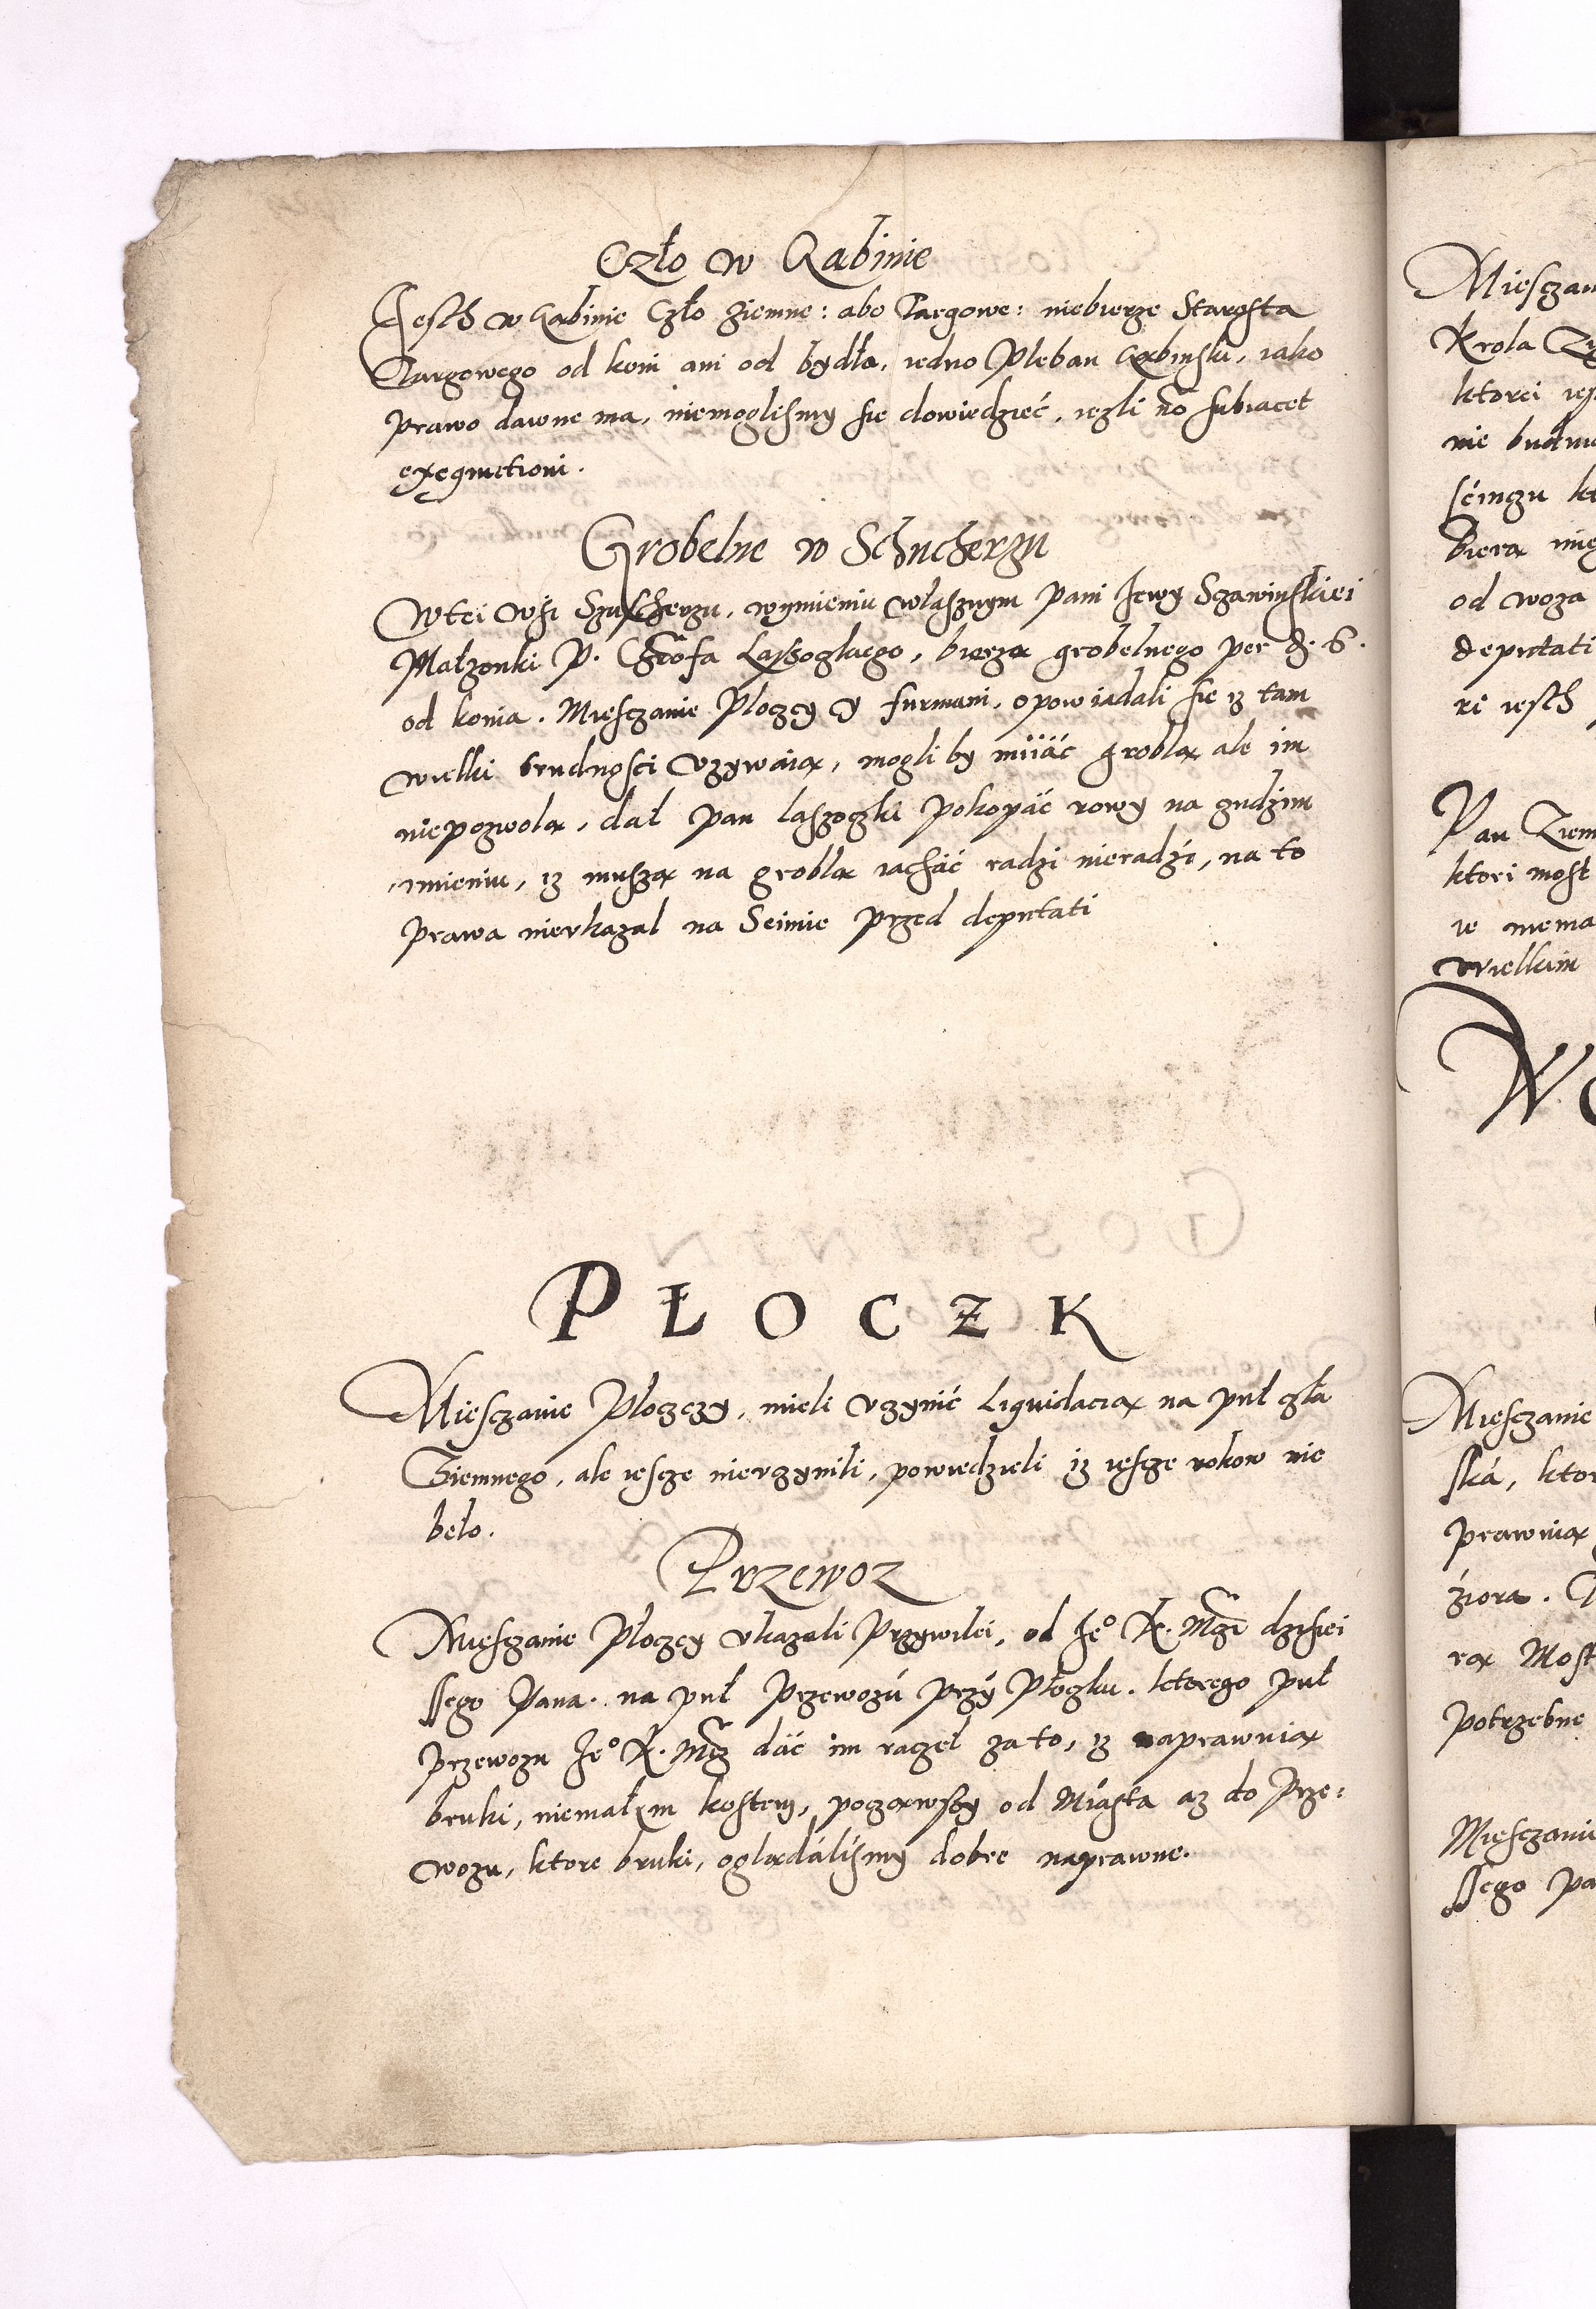 Czło w Gąbinie
Jesth w Gąbinie Czło ziemne: abo Targowe: niebierze Starosta
Targowego od koni ani od bydła, iedno Pleban Gąbinski, iako
prawo dawne ma, niemoglismy sie dowiedzieć, iezli no subiacet
exequutioni.
Grobelne w Schucherzu
W tei wsi Szuscherzu, wymieniu własznym pani Jewy Sczawinskiei
Małzonki P. Laszoczkiego, bierzą grobelnego per d. 6.
od konia. Miesczanie Ploczcy y furmani, opowiadali sie iz tam
wielki trudnosci vzywaią, mogli by miiäc groblą ale im
niepozwolą, dał pan laszoczki pokopäc rowy na zudzim
imieniu, iz muszą na groblą iachäc radzi nieradzi, na to
prawa nievkazal na Seimie przed deputati
PŁOCZK
Miesczanie Płoczczy, mieli vczynić Liquidacią na puł czła
Ziemnego, ale iescze nievczynili, powiedzieli iz iescze rokow nie
beło.
Przewoz
Miesczanie Płoczcy vkazali Przywilei, od Je° K. Mczi dzisiei
ssego Pana. na puł Przewozú przÿ Płoczku. ktorego puł
przewozu Je° K. Mcz däc im raczeł za to, iz naprawuią
bruki, niemałem kostem, począwszy od Miásta az do Prze:
wozu, ktore bruki, oglądálismy dobre naprawne.
Miesczan
Krola
ktorei
nie
od woza
deputati
ri iesth
Pan
ktori most
ie niema
wielkim
Miesczanie
ská, ktor
prawuią
ziora.
rą Most
potrzebne
Miesczani
ssego Pa